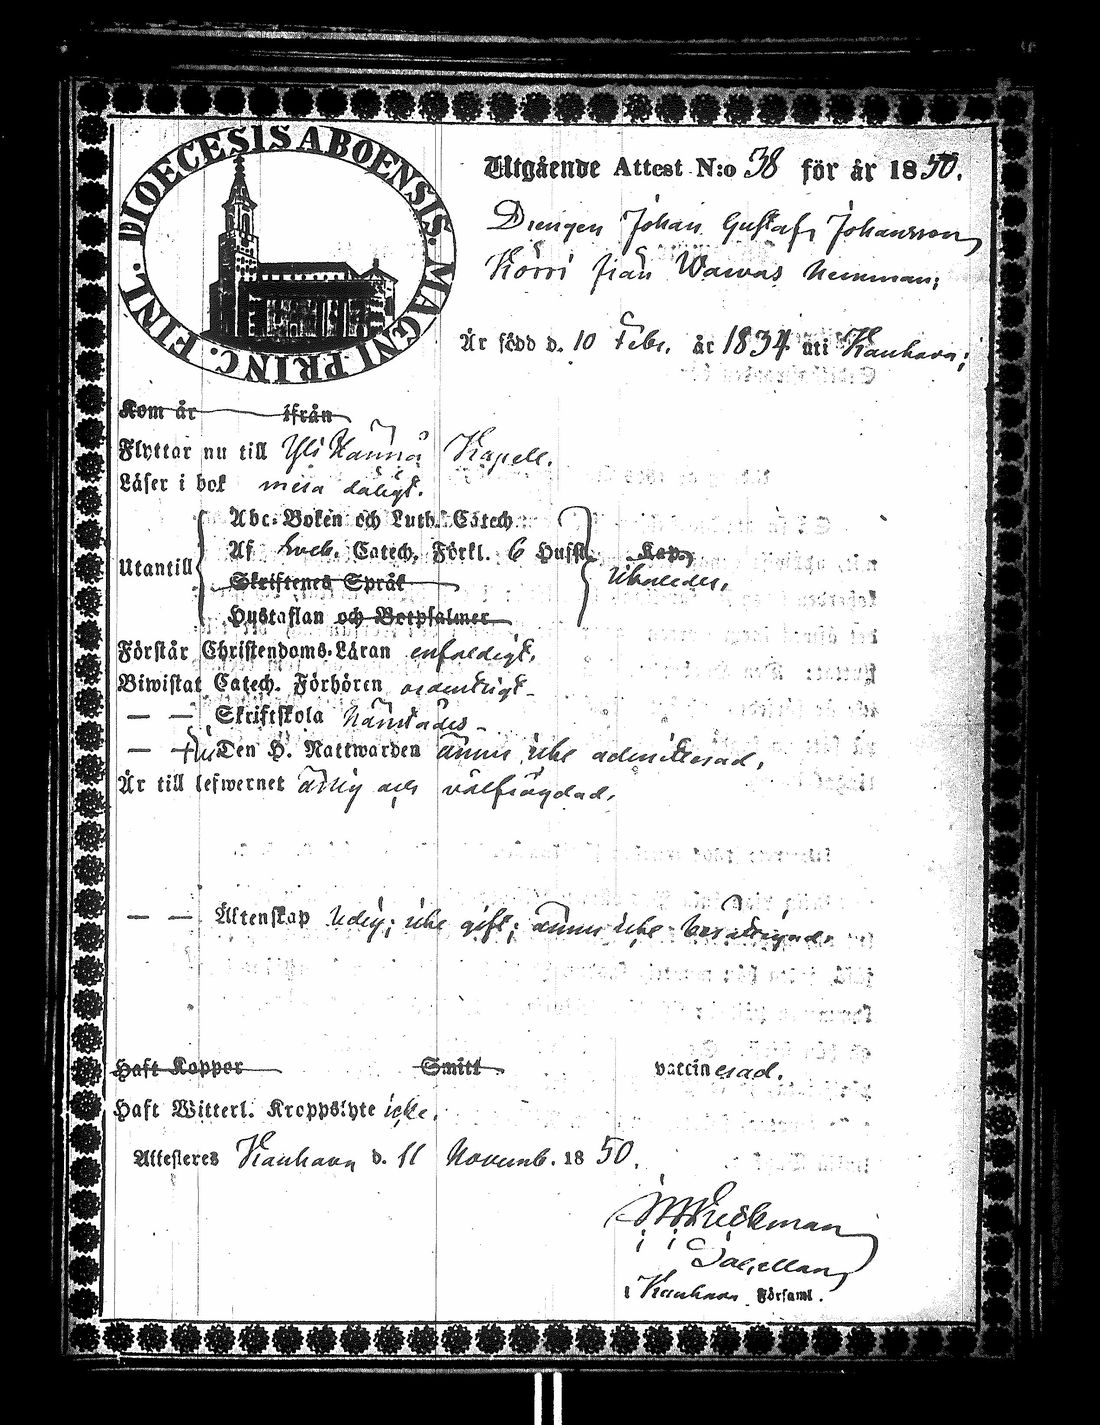 DIOECESIS ABOENSIS. MAGNI PRINC. FINL.
Utgående Attest N:o 38 för år 1850.
Drengen Johan Gustaf Johansson
Körri från Wawas hemman;
Är född d. 10 Febr. år 1834 uti Kauhava;
Kom år ifrån
Flyttar nu till Yli Kapell.
Läser i bok dåligt.
Abc-Boken och Luth. Catech.
Utantill Af Sveb. Catech. Förkl. 6 Hufst. Kap.
Skriftenes Språk
Hustaflan och Botpsalmer
Förstår Christendoms-Läran enfaldigt.
Biwistat Catech. Förhören ordentligt
— — Skriftskola
— — Den H. Nattwarden ännu icke admitterad.
Är till lefwernet ärlig och välfrägdad.
— — Äktenskap ledig; icke gift; ännu icke berättigad.
Haft Koppor Smitt vaccinerad.
Haft Witterl. Kroppslyte icke.
Attesteres Kauhava d. 11 Novemb. 1850.
i Kauhava Församl.